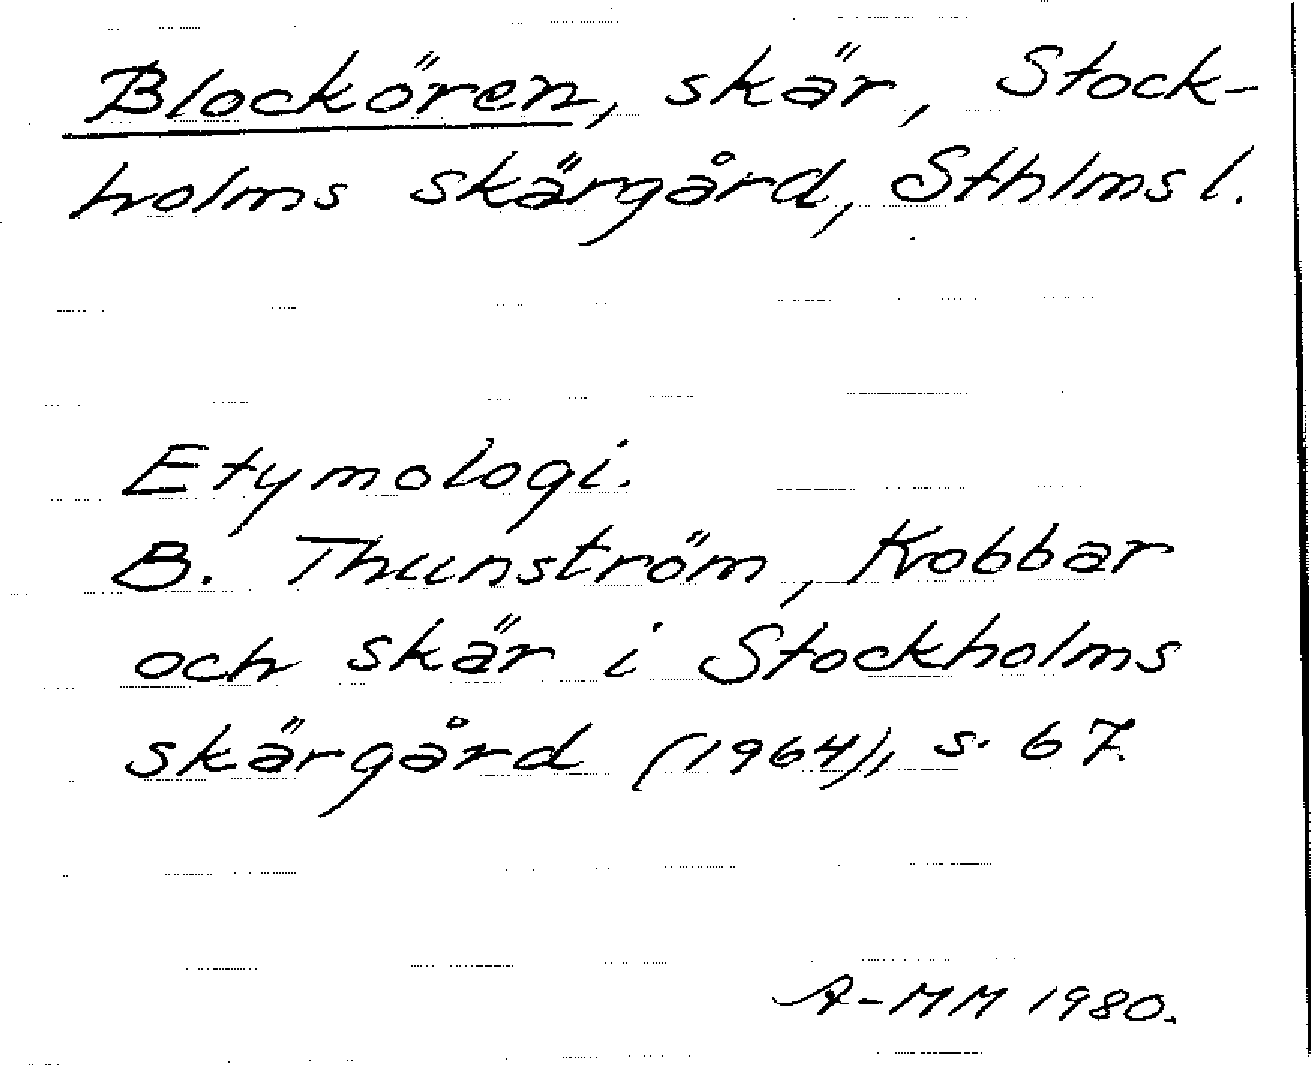 Blockören, skär, Stock-
holms skärgård, Sthlms l.
Etymologi.
B. Thunström, Kobbar
och skär i Stockholms
skärgård (1964), s. 67.
A-MM 1980.